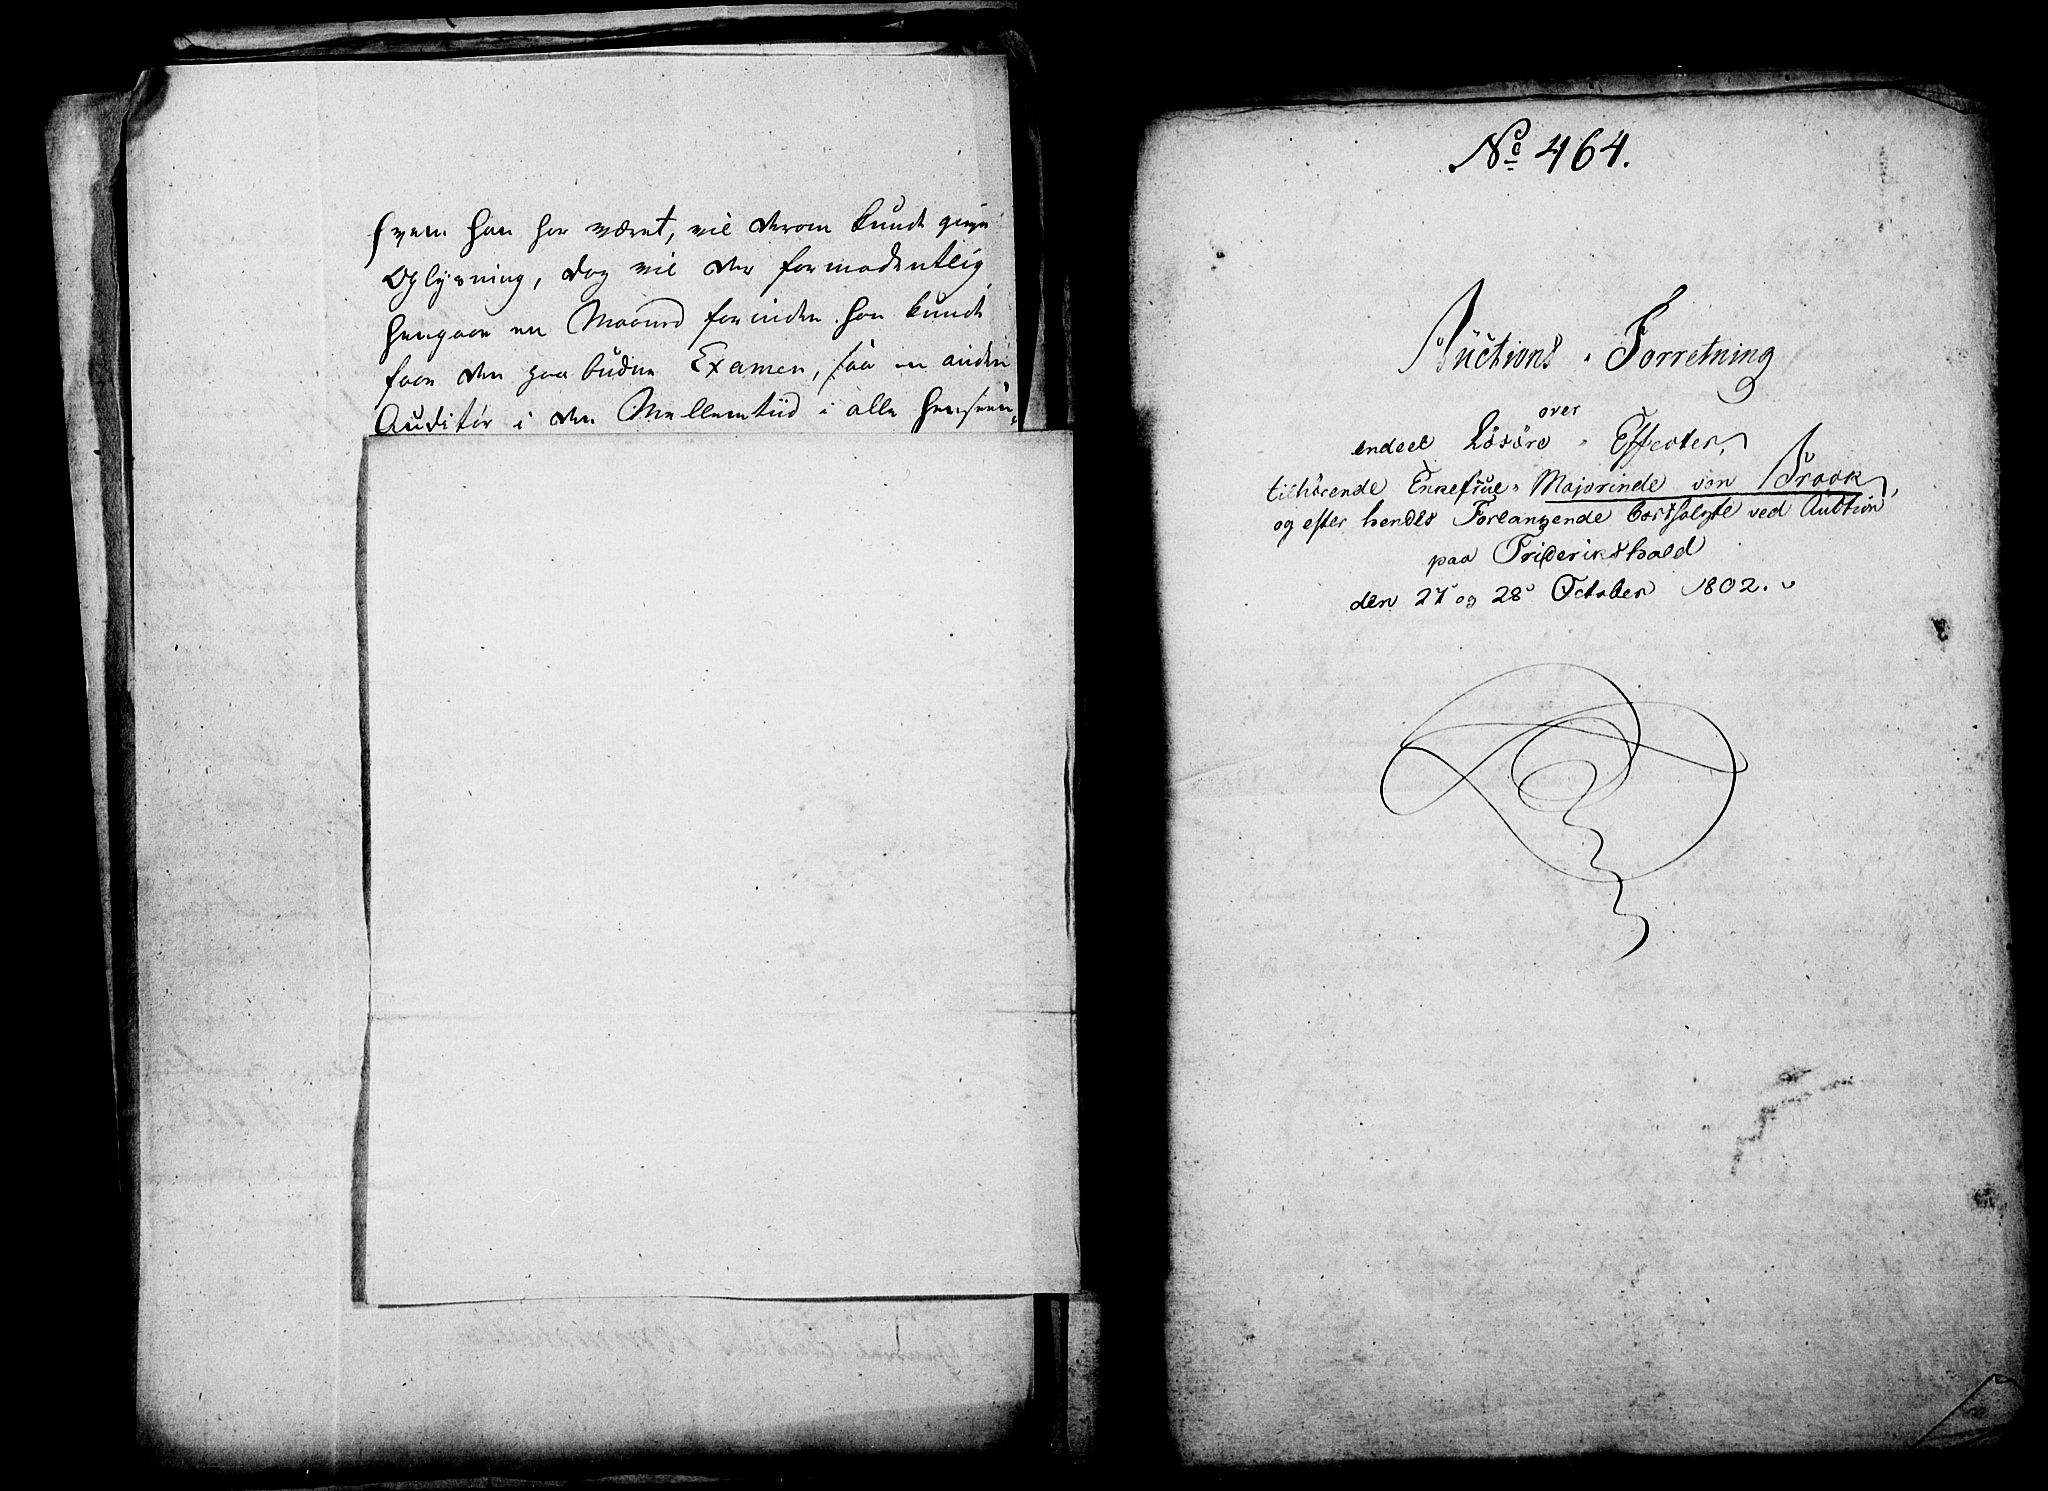 hvem han har været, vil derom kunde give
Oplysning, dog vil der formodentlig
hengaae en Maaned forinden han kunde
faae den paabudne Examen, saa en anden
Auditør i den Mellemtiid i alle Henseen-
No 464.
Auctions-Forretning
over
endeel Løsøre-Effecter,
tilhørende Enkefrue-Majorinde von
og efter hendes Forlangende bortsolgte ved Auction
paa Friderikshald
den 27 og 28 October 1802.